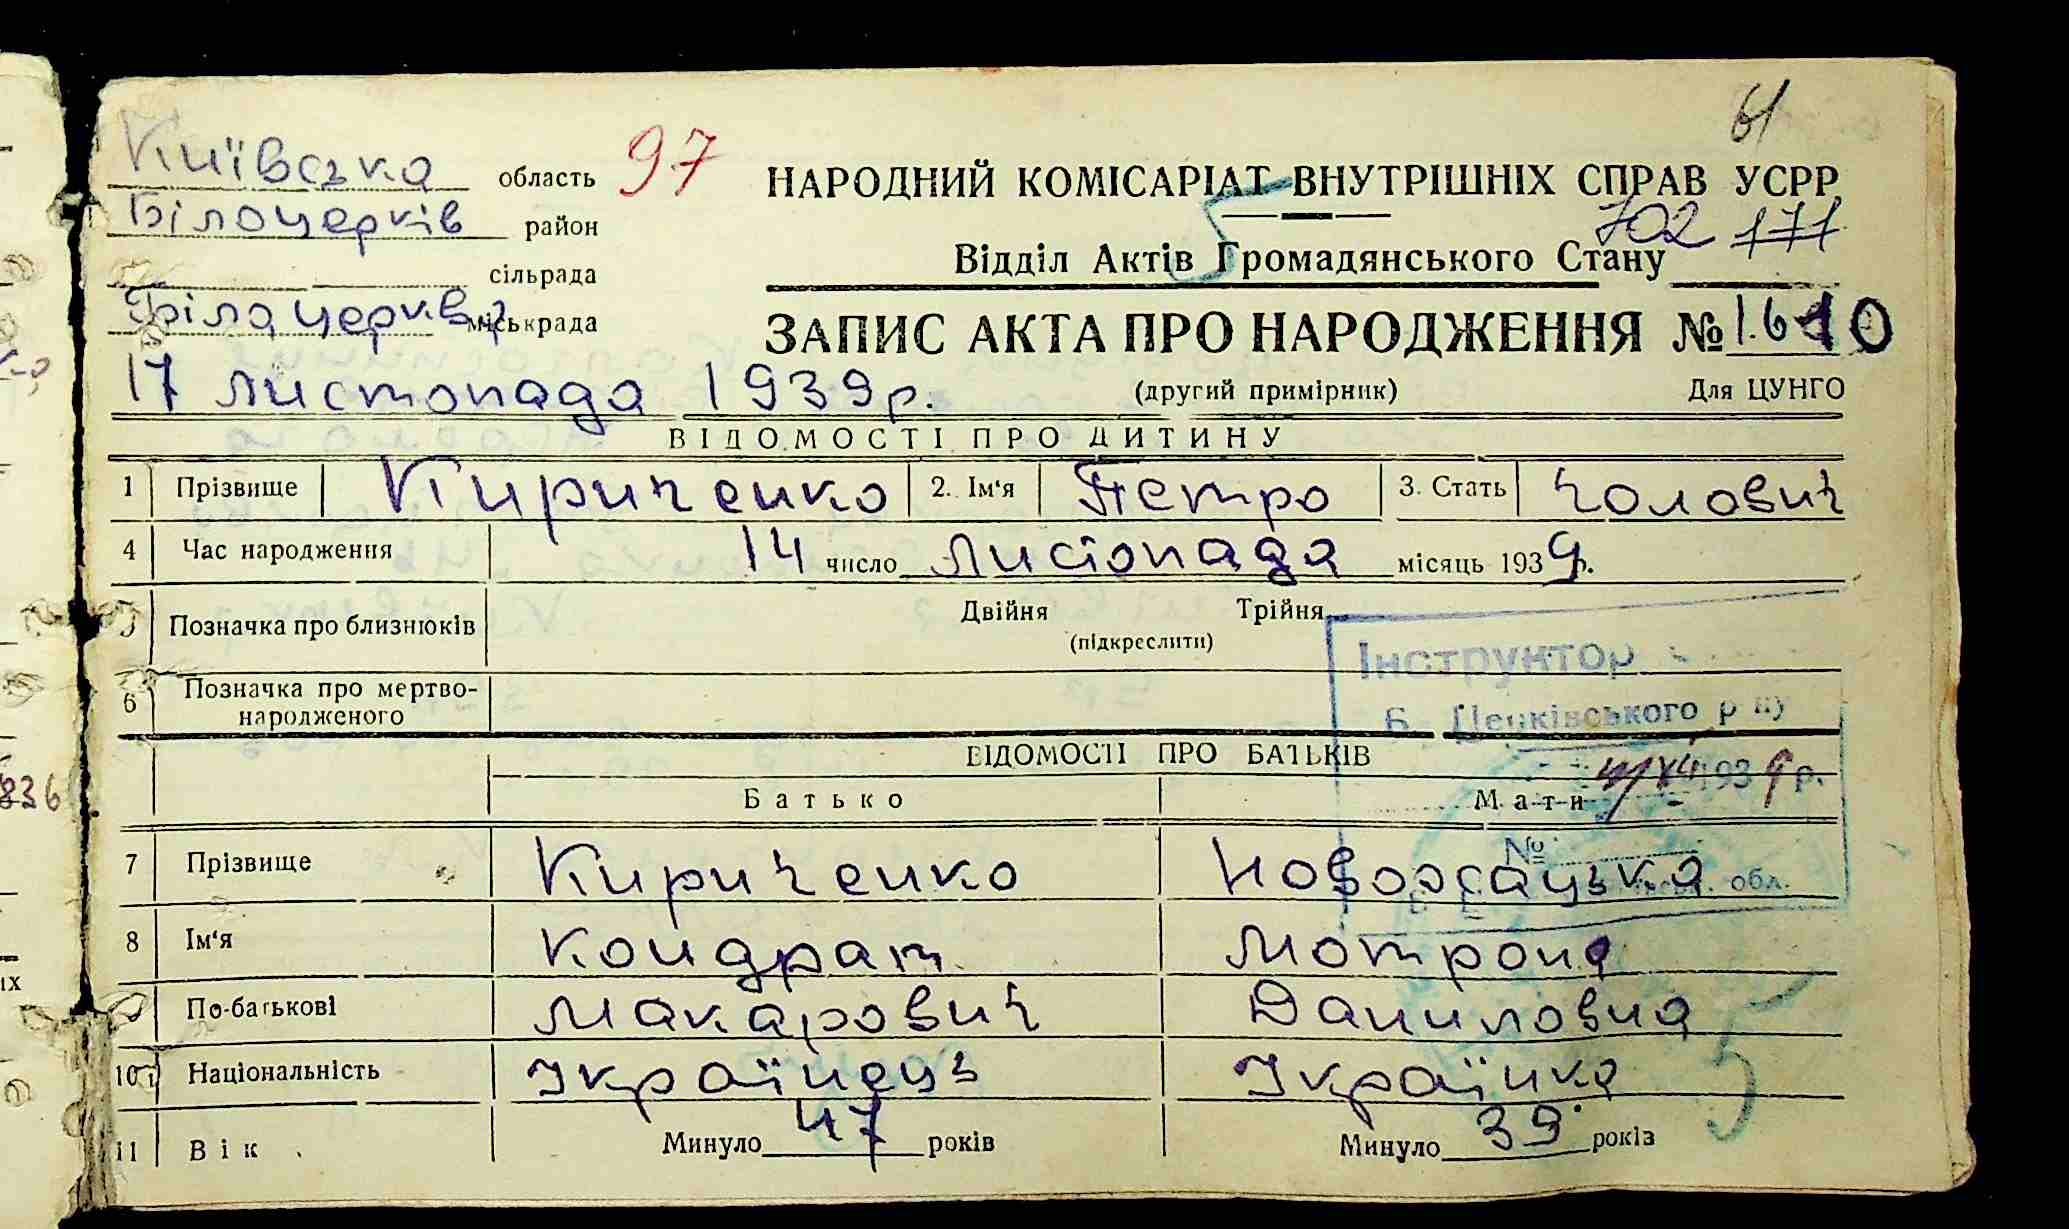 Київська область 97
Білоцерків район
сільрада
Біла церква міськрада
61
НАРОДНИЙ КОМІСАРІАТ ВНУТРІШНІХ СПРАВ УСРР
702 171
Відділ Актів Громадянського Стану
ЗАПИС АКТА ПРО НАРОДЖЕННЯ №
17 листопада 1939 р. (другий примірник) Для ЦУНГО
ВІДОМОСТІ ПРО ДИТИНУ
1 Прізвище Кириченко 2. Ім'я Петро 3. Стать Чолович
4 Час народження 14 число листопада місяць 1939 р.
5 Позначка про близнюків Двійня Трійня
(підкреслити)
6 Позначка про мертво-
народженого
Інструктор
Б. Церківського р
ВІДОМОСТІ ПРО БАТЬКІВ
1939 р.
Батько Мати
№
7 Прізвище Кириченко
обл.
8 Ім'я Кондрат Мотрона
9 По-батькові Макарович Даниловна
10 Національність Українець Українка
11 Вік Минуло 47 років Минуло 39 років
836
их